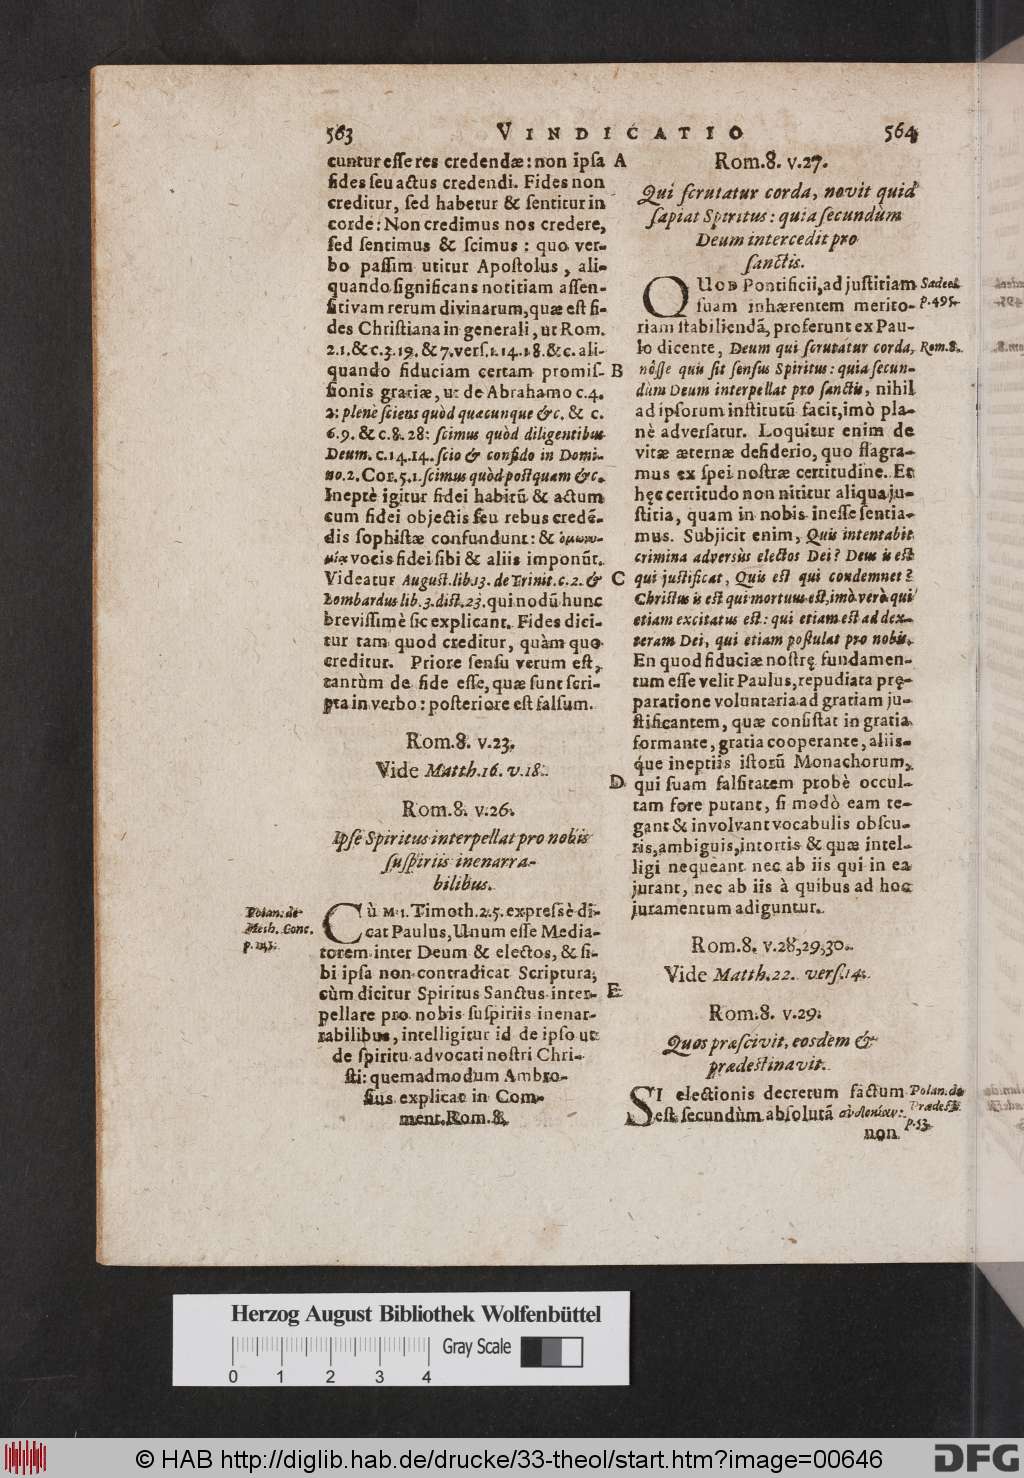 563
VINDICATIO
564
cuntur eſſe res credendæ: non ipſa
fides ſeu actus credendi. Fides non
creditur, ſed habetur & ſentitur in
corde: Non credimus nos credere,
ſed ſentimus & ſcimus: quo ver-
bo paſſim utitur Apoſtolus, ali-
quando ſignificans notitiam aſſen-
ſitivam rerum divinarum, quæ eſt fi-
des Chriſtiana in generali, ut Rom.
2.1. & c.3.19. & 7. verſ.1.14.18. &c. ali-
quando fiduciam certam promiſ-
ſionis gratiæ, ut de Abrahamo c.4.
2: plenè ſciens quòd quæcunque &c. & c.
6.9. & c.8.28: ſcimus quòd diligentibus
Deum. c.14.14. ſcio & confido in Domi-
no. 2. Cor.5.1. ſcimus quòd poſtquam &c.
Ineptè igitur fidei habitũ & actum
cum fidei objectis ſeu rebus credẽ-
dis ſophiſtæ confundunt: & ὁμωνυ-
μίᾳ vocis fidei ſibi & aliis imponũt.
Videatur Auguſt. lib.13. de Trinit. c.2. &
Lombardus lib.3. diſt.23. qui nodũ hunc
breviſſimè ſic explicant. Fides dici-
tur tam quod creditur, quàm quo
creditur. Priore ſenſu verum eſt,
tantùm de fide eſſe, quæ ſunt ſcri-
pta in verbo: poſteriore eſt falſum.
Rom.8. v.23.
Vide Matth.16. v.18.
Rom.8. v.26.
Ipſe Spiritus interpellat pro nobis
ſuſpiriis inenarra-
bilibus.
Polan. de
Meth. Conc.
CùM 1. Timoth.2.5. expreſsè di-
cat Paulus, Unum eſſe Media-
torem inter Deum & electos, & ſi-
bi ipſa non contradicat Scriptura;
cùm dicitur Spiritus Sanctus inter-
pellare pro nobis ſuſpiriis inenar-
rabilibus, intelligitur id de ipſo ut
de ſpiritu advocati noſtri Chri-
ſti: quemadmodum Ambro-
ſius explicat in Com-
ment. Rom.8.
A
B
C
D
E
Rom.8. v.27.
Qui ſcrutatur corda, novit quid
ſapiat Spiritus: quia ſecundùm
Deum intercedit pro
ſanctis.
QUod Pontificii, ad juſtitiam
ſuam inhærentem merito-
riam ſtabiliendã, proferunt ex Pau-
lo dicente, Deum qui ſcrutatur corda,
nôſſe quis ſit ſenſus Spiritus: quia ſecun-
dùm Deum interpellat pro ſanctis, nihil
ad ipſorum inſtitutũ facit, imò pla-
nè adverſatur. Loquitur enim de
vitæ æternæ deſiderio, quo flagra-
mus ex ſpei noſtræ certitudine. Et
hęc certitudo non nititur aliqua ju-
ſtitia, quam in nobis ineſſe ſentia-
mus. Subjicit enim, Quis intentabit
crimina adversùs electos Dei? Deus is eſt
qui juſtificat, Quis eſt qui condemnet?
Chriſtus is eſt qui mortuus eſt, imò verò qui
etiam excitatus eſt: qui etiam eſt ad dex-
teram Dei, qui etiam poſtulat pro nobis.
En quod fiduciæ noſtrę fundamen-
tum eſſe velit Paulus, repudiata pre-
paratione voluntaria ad gratiam ju-
ſtificantem, quæ conſiſtat in gratia
formante, gratia cooperante, aliis-
que ineptiis iſtorũ Monachorum,
qui ſuam falſitatem probè occul-
tam fore putant, ſi modò eam te-
gant & involvant vocabulis obſcu-
ris, ambiguis, intortis & quæ intel-
ligi nequeant nec ab iis qui in ea
jurant, nec ab iis à quibus ad hoc
juramentum adiguntur.
Sadeel
p.495.
Rom.8.
Rom.8. v.28,29,30.
Vide Matth.22. verſ.14.
Rom.8. v.29.
Quos præſcivit, eosdem &
prædeſtinavit.
SI electionis decretum factum
eſt ſecundùm abſolutã
non
Polan. de
Prædeſt.
p.53.
Herzog August Bibliothek Wolfenbüttel
Gray Scale
0 1 2 3 4
© HAB http://diglib.hab.de/drucke/33-theol/start.htm?image=00646
DFG